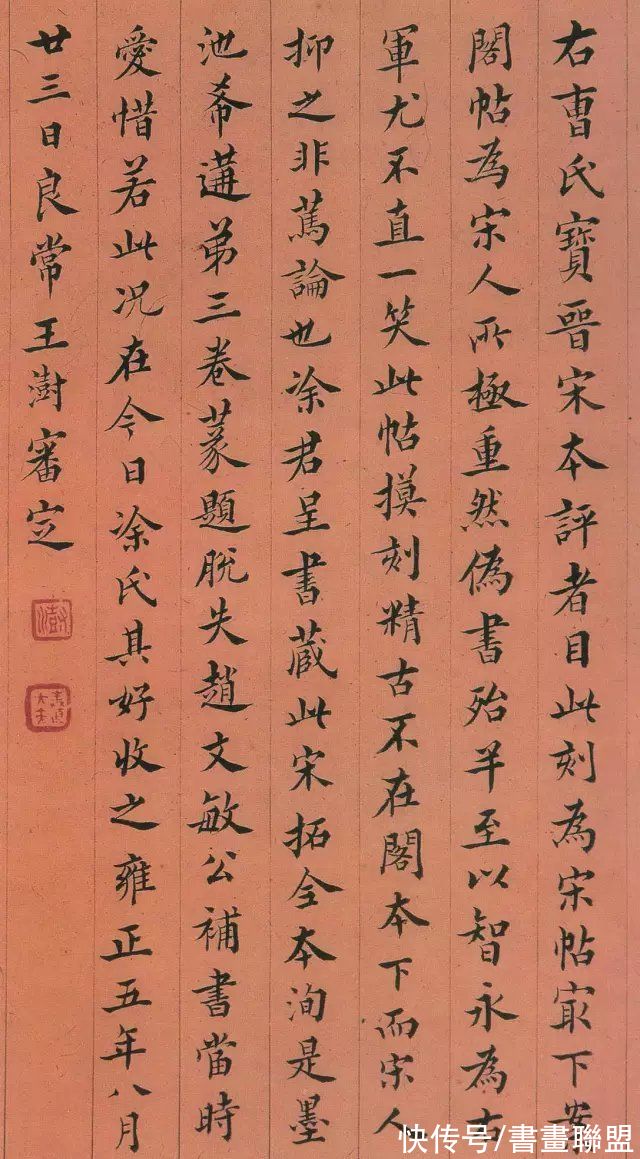 右曺氏寶晉宋本評者目此刻為宋帖冣下案
閣帖為宋人所極重然偽書殆半至以智永為右
軍尤不直一笑此帖摸刻精古不在閣本下而宋人
抑之非篤論也凃君呈書藏此宋拓全本洵是墨
池希遘弟三卷篆題脫失趙文敏公補書當時
愛惜若此況在今日凃氏其好收之雍正五年八月
廿三日良常王澍審定
澍
快传号/書畫聯盟